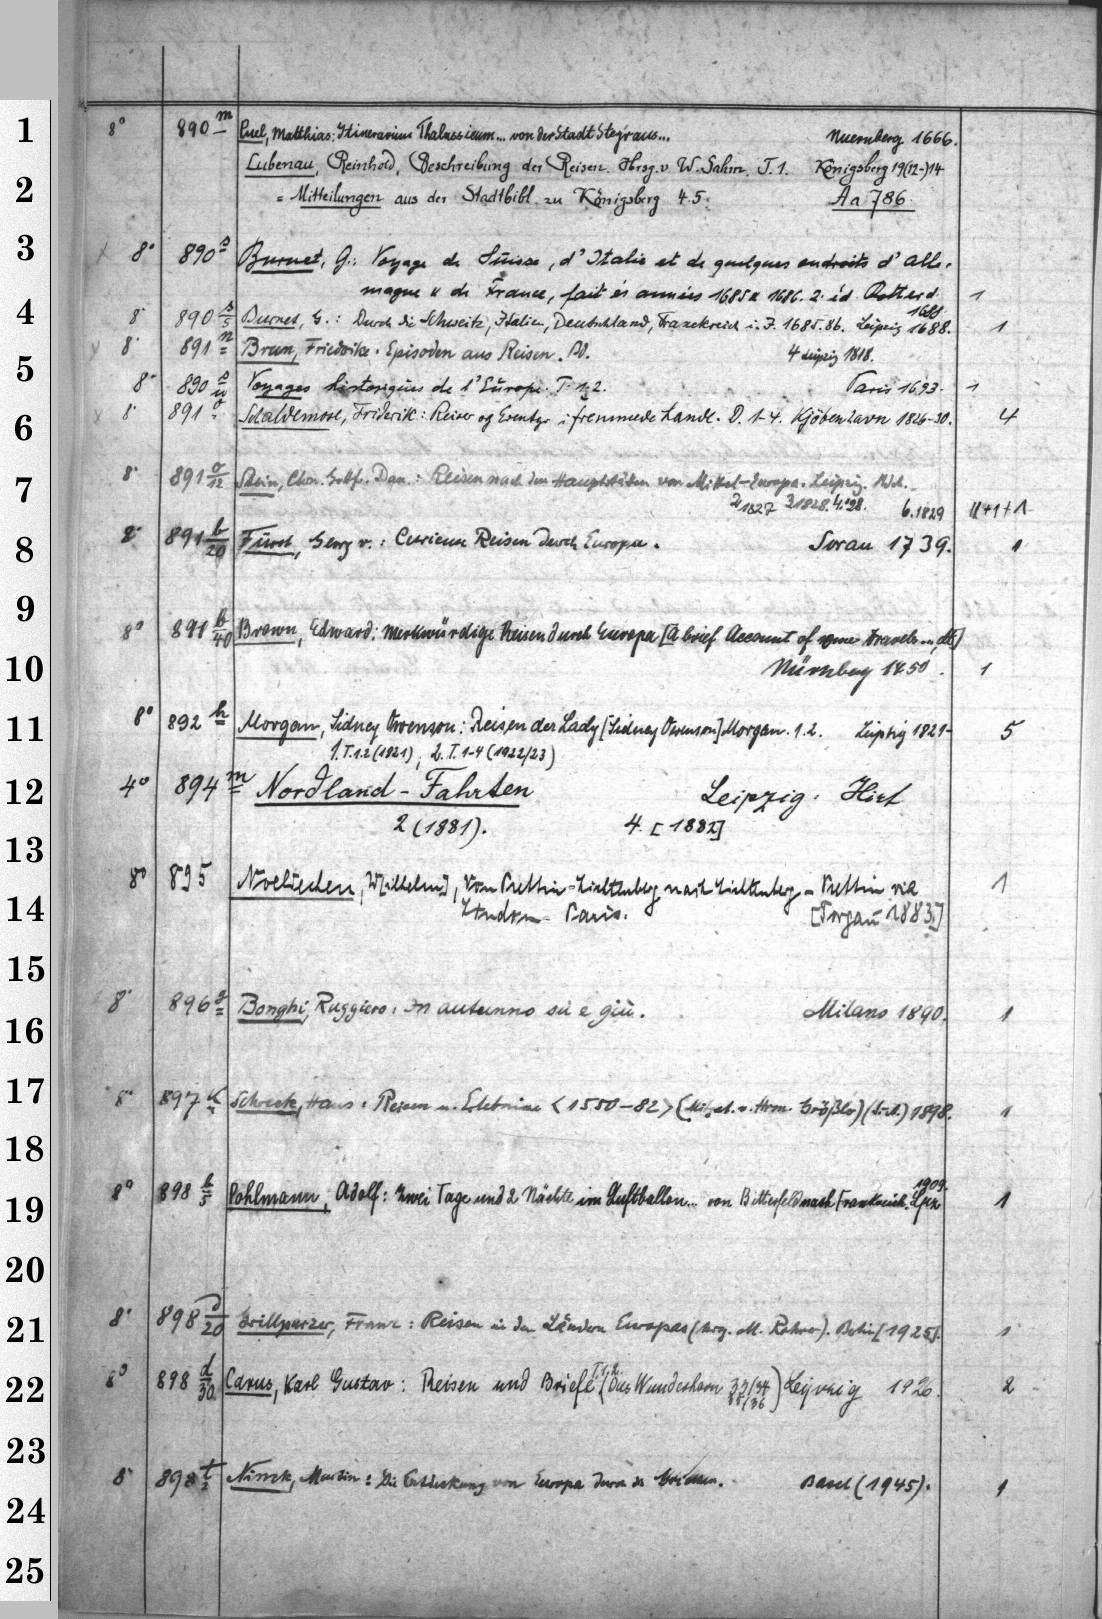 1
2
3
4
5
6
7
8
9
10
11
12
13
14
15
16
17
18
19
20
21
22
23
24
25
8° 890 m Puel, Matthias: Itinerarium Thalassicum... von der Stadt Steyr aus... Nuernberg 1666.
Lubenau, Reinhold, Beschreibung der Reisen. Hrsg. v. W. Sahm. T. 1. Königsberg 19(12-)14
= Mitteilungen aus der Stadtbibl. zu Königsberg 4.5. Aa 786.
8° 890 s Burnet, G.: Voyage de Suisse, d'Italie et de quelques endroits d'Alle-
magne & de France, fait és années 1685 & 1686. 2. éd. Rotterd. 1
8° 890 s/5 Burnet, G.: Durch die Schweitz, Italien, Deutschland, Franckreich i. J. 1685.86. Leipzig 1688. 1
8° 891 n Brun, Friedrike. Episoden aus Reisen. Bd. 4 Leipzig 1818.
8° 890 Voyages historiques de l'Europe. T. 1.2. Paris 1693. 1
8° 891 Schaldemose, Friderik: Reiser og Eventyr i fremmede Lande. D. 1-4. Kjöbenhavn 1826-30. 4
8° 891 o/12 Stein, Chn. Gottfr. Dan.: Reisen nach den Hauptstädten von Mittel-Europa. Leipzig.
2 1827 3 1828. 4.'28. 6.1829 11+1+1
8° 891 b/20 Fürst, Georg v.: Curieuse Reisen durch Europa. Sorau 1739. 1
8° 891 b/40 Brown, Edward: Merkwürdige Reisen durch Europa [A brief Account of some travels..., dt.]
Nürnberg 1750. 1
8° 892 h Morgan, Sidney Owenson: Reisen der Lady [Sidney Owenson] Morgan. 1.2. Leipzig 1821- 5
1. T. 1.2 (1821), 2. T. 1-4 (1822/23)
4° 894 m Nordland-Fahrten Leipzig. Hirt
2 (1881). 4. [1882]
8° 895 Noeldechen, W[ilhelm], Von Prettin-Lichtenberg nach Lichtenberg-Prettin via 1
London-Paris. [Torgau 1883.]
8° 896 g Bonghi, Ruggiero: In autunno su e giù. Milano 1890. 1
8° 897 k Schreck, Hans: Reisen u. Erlebnisse <1550-82> (Mitget. v. Hrm. Größler) 1898. 1
8° 898 b/5 Pohlmann, Adolf: Zwei Tage und 2 Nächte im Luftballon... von Bitterfeld nach Frankreich. Lpz 1909. 1
8° 898 d/20 Grillparzer, Franz: Reisen in den Ländern Europas (hrg. M. Rohrer). Berlin [1925]. 1
8° 898 d/30 Carus, Karl Gustav: Reisen und Briefe. T. 1.2. (Das Wunderhorn 33/34 35/36) Leipzig 1926. 2
8° 898 t Ninck, Martin: Die Entdeckung von Europa durch die Griechen. Basel (1945). 1